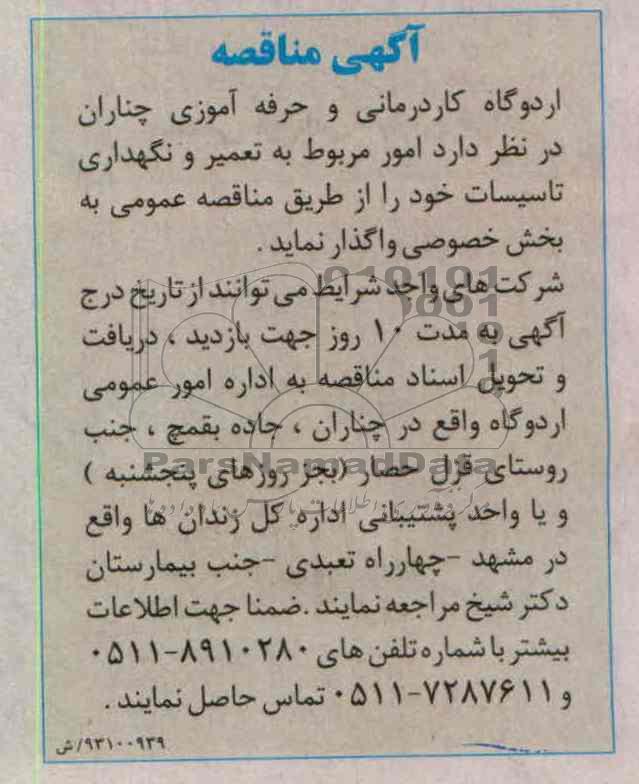 آگهی مناقصه
اردوگاه کاردرمانی و حرفه آموزی چناران
در نظر دارد امور مربوط به تعمیر و نگهداری
تاسیسات خود را از طریق مناقصه عمومی به
بخش خصوصی واگذار نماید .
شرکت های واجد شرایط می توانند از تاریخ درج
آگهی به مدت ۱۰ روز جهت بازدید ، دریافت
و تحویل اسناد مناقصه به اداره امور عمومی
اردوگاه واقع در چناران ، جاده بقمچ ، جنب
ParsNamadData
روستای قزل حصار (بجز روزهای پنجشنبه )
و یا واحد پشتیبانی اداره کل زندان ها واقع
در مشهد -چهارراه تعبدی -جنب بیمارستان
دکتر شیخ مراجعه نمایند .ضمنا جهت اطلاعات
بیشتر با شماره تلفن های ۸۹۱۰۲۸۰-۰۵۱۱
و ۷۲۸۷۶۱۱-۰۵۱۱ تماس حاصل نمایند .
۹۳۱۰۰۹۳۹/ش